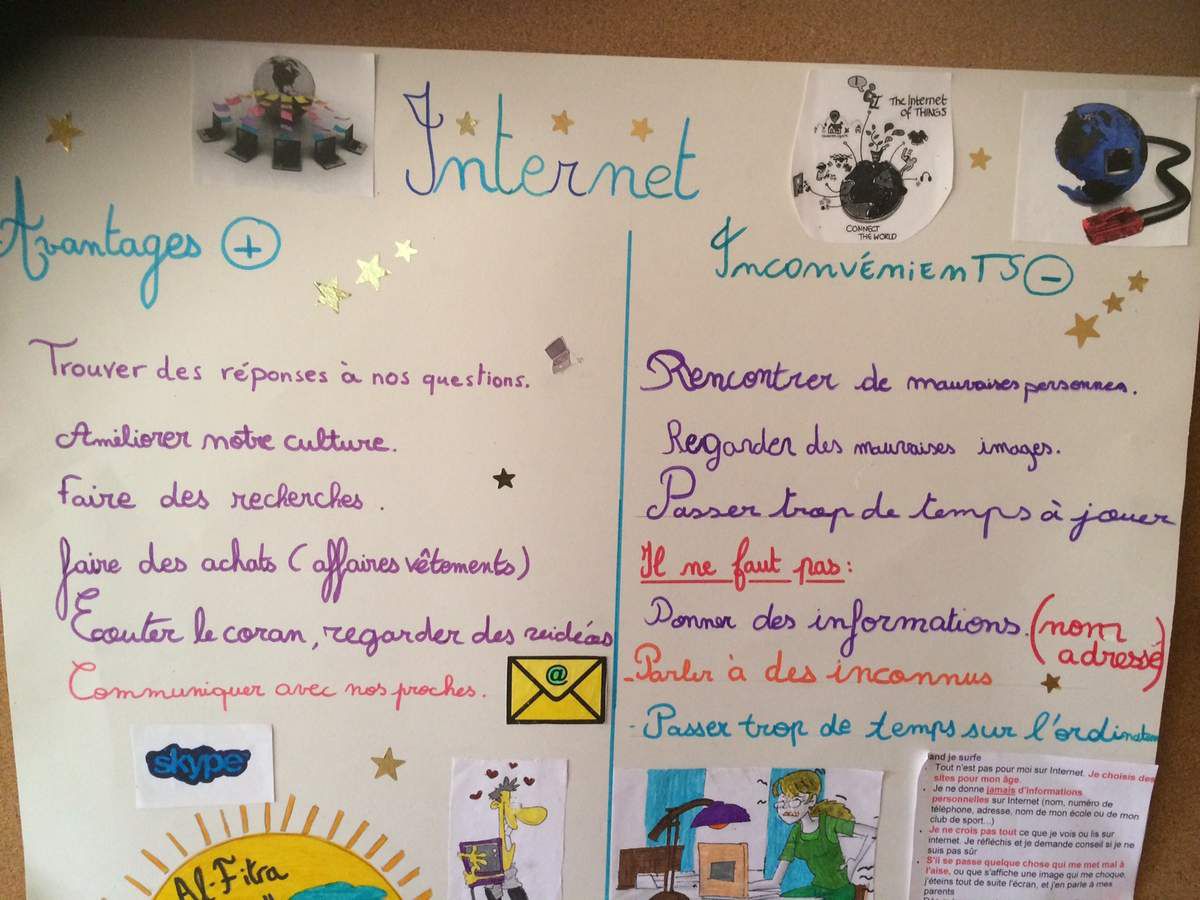 Internet
The Internet
of THINGS
CONNECT
THE WORLD
Avantages +
Trouver des réponses à nos questions.
Améliorer notre culture.
Faire des recherches.
faire des achats (affaires vêtements)
Ecouter le coran, regarder des
Communiquer avec nos proches.
@
skype
Al-Fitra
Inconvénients -
Rencontrer de mauvaises personnes.
Regarder des mauvaises images.
Passer trop de temps à jouer
Il ne faut pas:
Donner des informations (nom
adresse)
-Parler à des inconnus
-Passer trop de temps sur l'ordinateur
and je surfe
• Tout n'est pas pour moi sur Internet. Je choisis des
sites pour mon âge.
• Je ne donne jamais d'informations
personnelles sur Internet (nom, numéro de
téléphone, adresse, nom de mon école ou de mon
club de sport...)
• Je ne crois pas tout ce que je vois ou lis sur
internet. Je réfléchis et je demande conseil si je ne
suis pas sûr
• S'il se passe quelque chose qui me met mal à
l'aise, ou que s'affiche une image qui me choque,
j'éteins tout de suite l'écran, et j'en parle à mes
parents